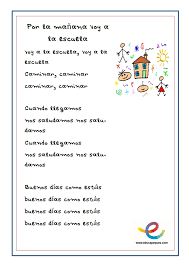 Por la mañana voy a
la escuela
voy a la escuela, voy a la
escuela
Caminar, caminar
caminar, caminar
Cuando llegamos
nos saludamos nos salu-
damos
Cuando llegamos
nos saludamos nos salu-
damos
Buenos días como estás
buenos días como estás
buenos días como estás
buenos días como estás
www.educapeques.com